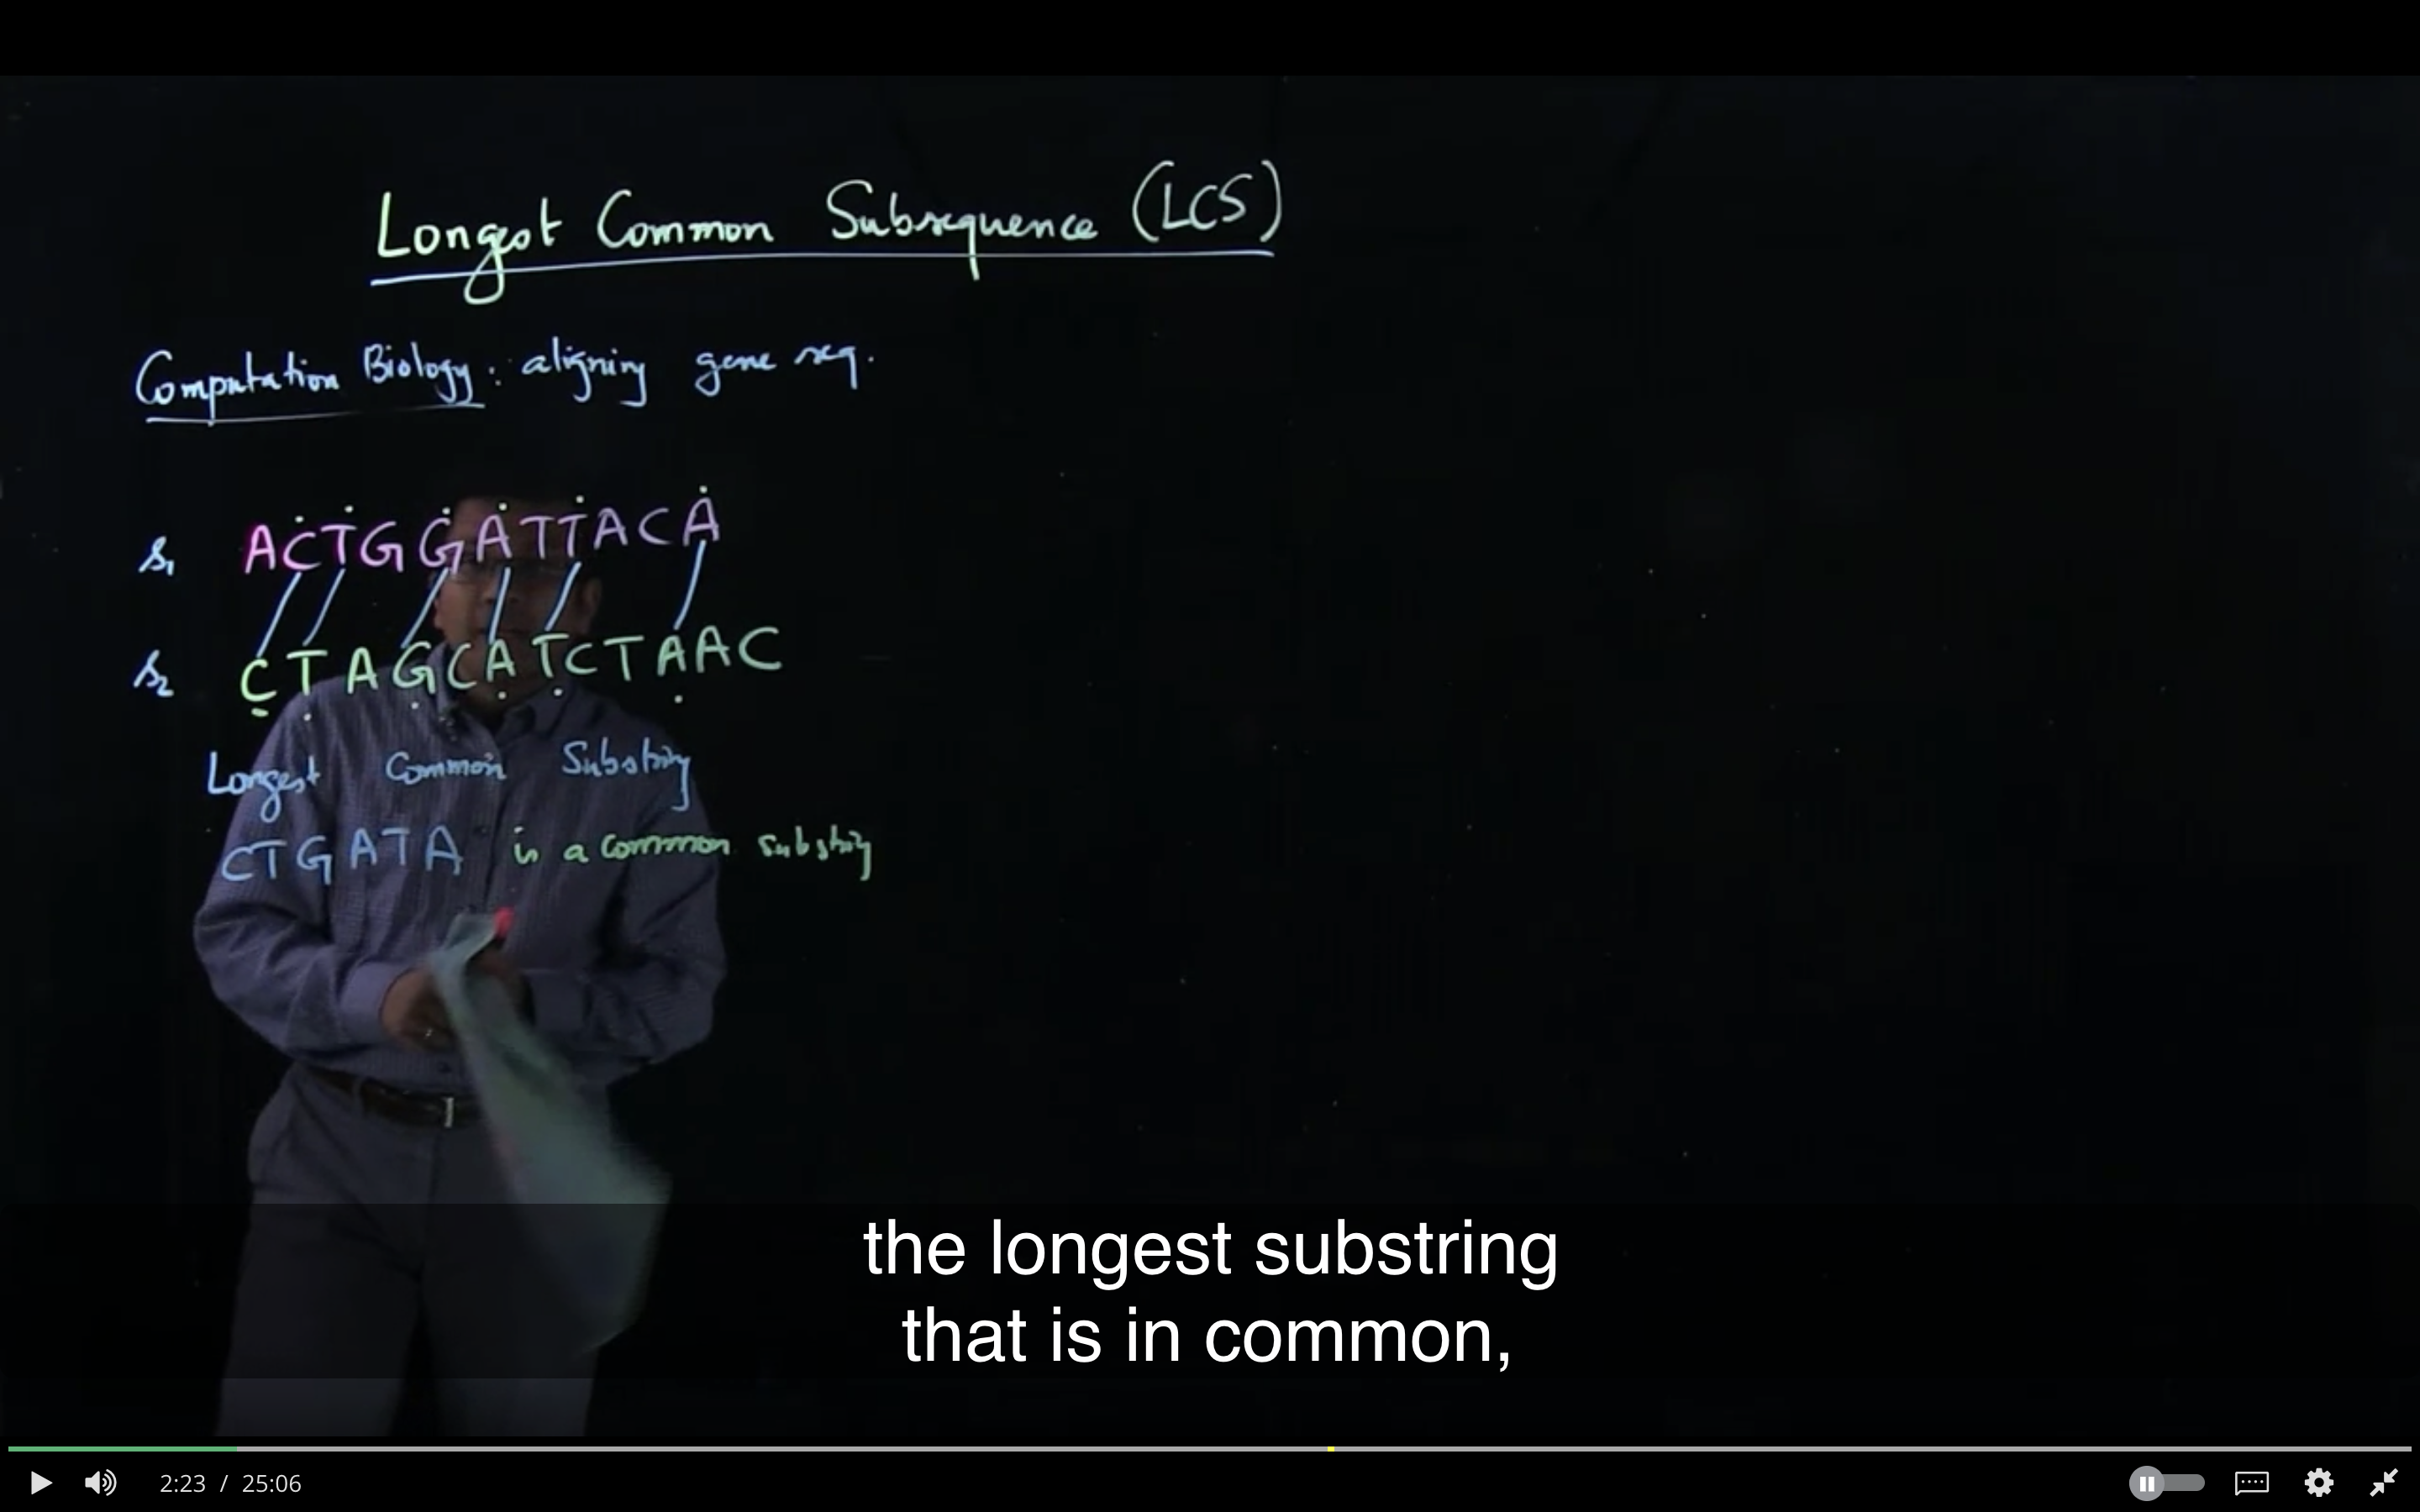 Longest Common Subsequence (LCS)
Computation Biology: aligning gene seq.
S1 ACTGGATTACA
S2 CTAGCATCTAAC
Longest Common Substring
CTGATA is a common substring
the longest substring
that is in common,
2:23 / 25:06